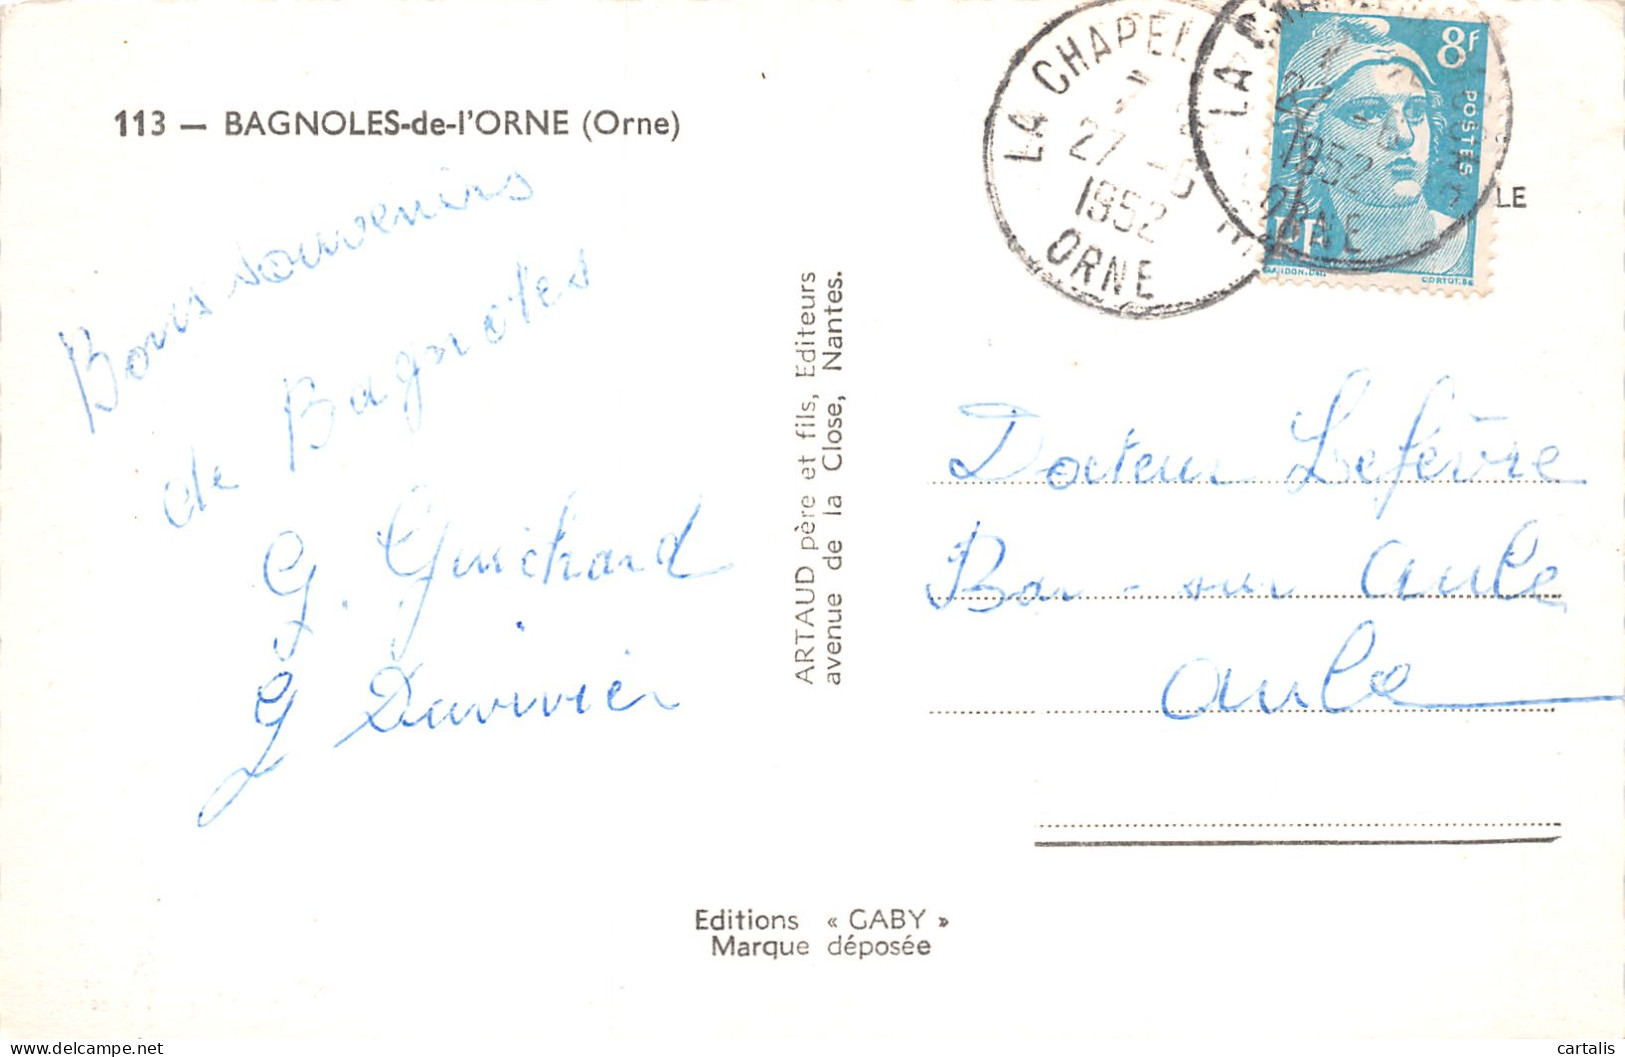 113 — BAGNOLES-de-l'ORNE (Orne)
Bons souvenirs
de Bagnoles
G. Guichard
G Duvivier
ARTAUD père et fils, Editeurs
avenue de la Close, Nantes.
LA CHAPEL
27 -6
1952
ORNE
LA CHA
27 -6
1952
ORNE
8F
POSTES
RF
GANDON.DEL.
CORTOT.SC
LE
Docteur Lefèvre
Bar-sur Aube
Aube
Editions « GABY »
Marque déposée
cartalis